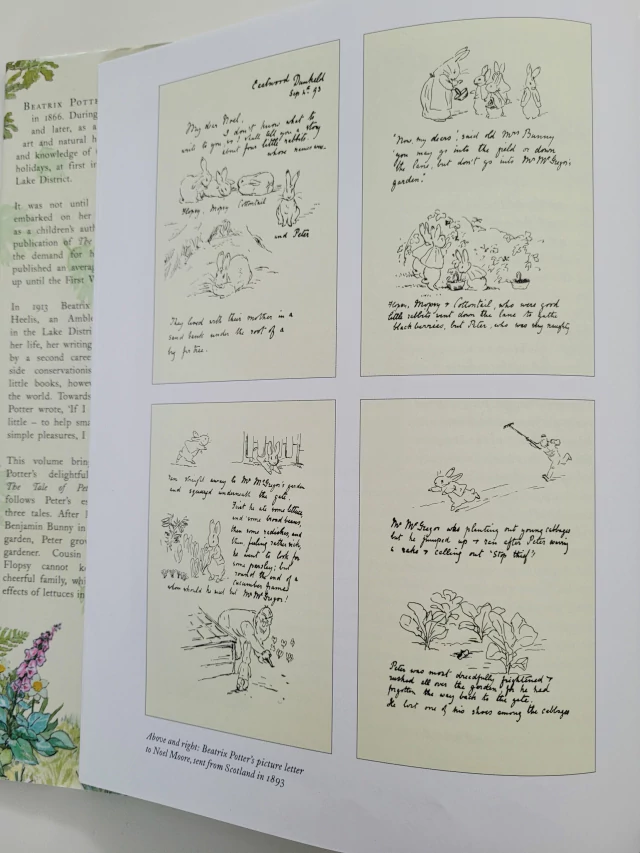 BEATRIX POTT
in 1866. During
and later, as a
art and natural h
and knowledge of
holidays, at first i
Lake District.
It was not until
embarked on her
as a children's auth
publication of The
the demand for h
published an averag
up until the First W
In 1913 Beatrix
Heelis, an Amble
in the Lake Distri
her life, her writing
by a second caree
side conservationis
little books, howev
the world. Towards
Potter wrote, 'If I
little – to help sma
simple pleasures, I
This volume brin
Potter's delightful
The Tale of Pete
follows Peter's es
three tales. After
Benjamin Bunny in
garden, Peter grow
gardener. Cousin
Flopsy cannot ke
cheerful family, whi
effects of lettuces in
Eastwood Dunkeld
Sep 4th 93
My dear Noel,
I don't know what to
write to you, so I shall tell you a story
about four little rabbits
whose names were
Flopsy, Mopsy Cottontail
and Peter
They lived with their mother in a
sand bank under the root of a
big fir tree.
"Now, my dears", said old Mrs Bunny
"you may go into the field or down
the lane, but don't go into Mr McGregor's
garden."
Flopsy, Mopsy & Cottontail, who were good
little rabbits went down the lane to gather
blackberries, but Peter, who was very naughty
ran straight away to Mr McGregor's garden
and squeezed underneath the gate.
First he ate some lettuce,
and some broad beans,
then some radishes, and
then, feeling rather sick,
he went to look for
some parsley; but
round the end of a
cucumber frame
whom should he meet but Mr McGregor!
Mr McGregor was planting out young cabbages
but he jumped up & ran after Peter waving
a rake & calling out "Stop thief"!
Peter was most dreadfully frightened &
rushed all over the garden for he had
forgotten the way back to the gate.
He lost one of his shoes among the cabbages
Above and right: Beatrix Potter's picture letter
to Noel Moore, sent from Scotland in 1893